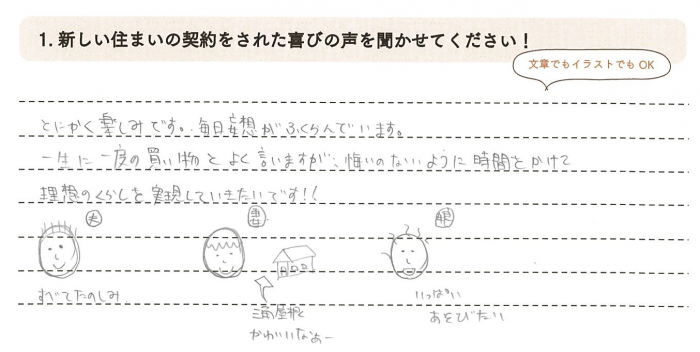 1. 新しい住まいの契約をされた喜びの声を聞かせてください！
文章でもイラストでも OK
とにかく楽しみです。毎日妄想がふくらんでいます。
一生に一度の買い物とよく言いますが、悔いのないように時間をかけて
理想のくらしを実現していきたいです!!
夫
妻
娘
すべてたのしみ
三角屋根と
かわいいなぁー
いっぱい
あそびたい